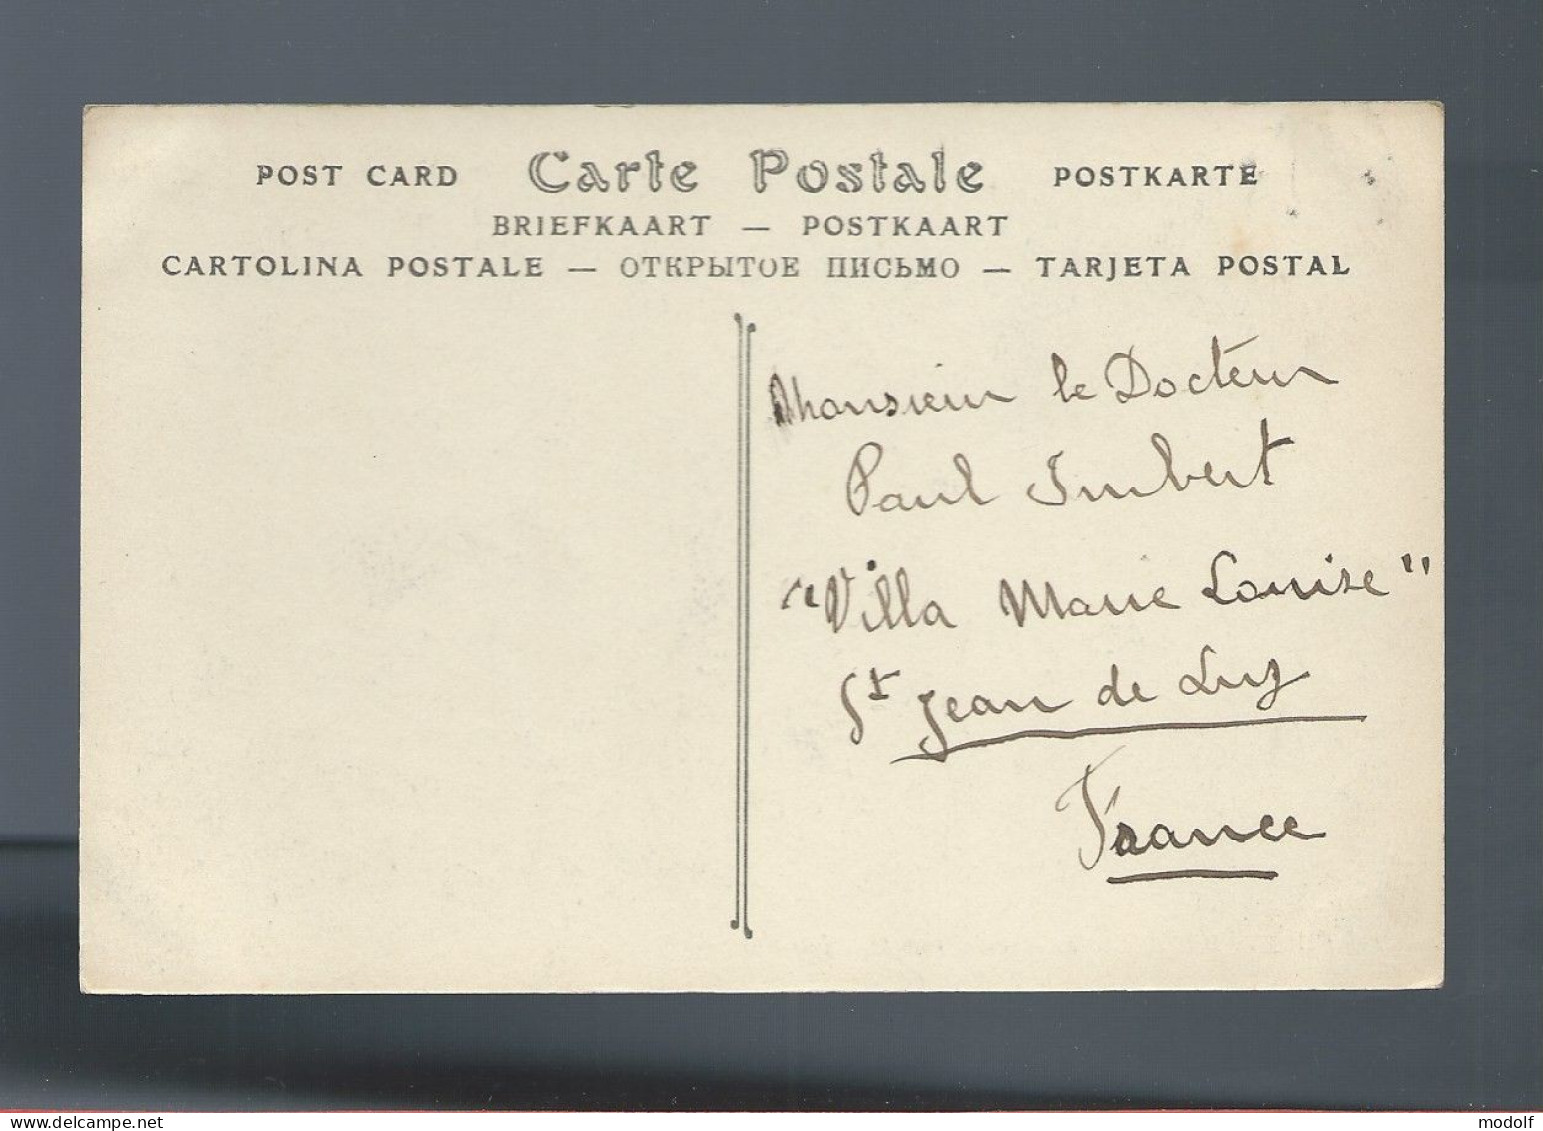 POST CARD Carte Postale POSTKARTE
BRIEFKAART — POSTKAART
CARTOLINA POSTALE — ОТКРЫТОЕ ПИСЬМО — TARJETA POSTAL
Monsieur le Docteur
Paul Imbert
"Villa Marie Louise"
St Jean de Luz
France
delcampe.net
modolf